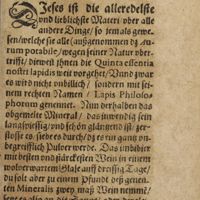 Dieses ist die alleredelste
und lieblichste Materi / über alle
andere Dinge / so jemals gewe-
sen / welche sie alle (außgenommen dz au-
rum potabile / wegen seiner Natur über-
trifft / dieweil ihnen die Quinta essentia
nostri lapidis weit vorgehet / Vnnd zwar
es wird nicht vnbillich / sondern mit sei-
nem rechten Namen / Lapis Philoso-
phorum genennet. Nim derhalben das
obgemelte Mineral / das inwendig sein
langspissig / vnd schön gläntzend ist: zer-
stosse es / siebe es durch / dz es ein gantz on-
begreifflich Pulver werde. Das imbibir
mit besten vnd
Wein in einem
wolverwarten Glase auff dreissig Tage /
du solt aber zu einem Pfundt des gemel-
ten Mineralis zwey maß Wein nemmen /